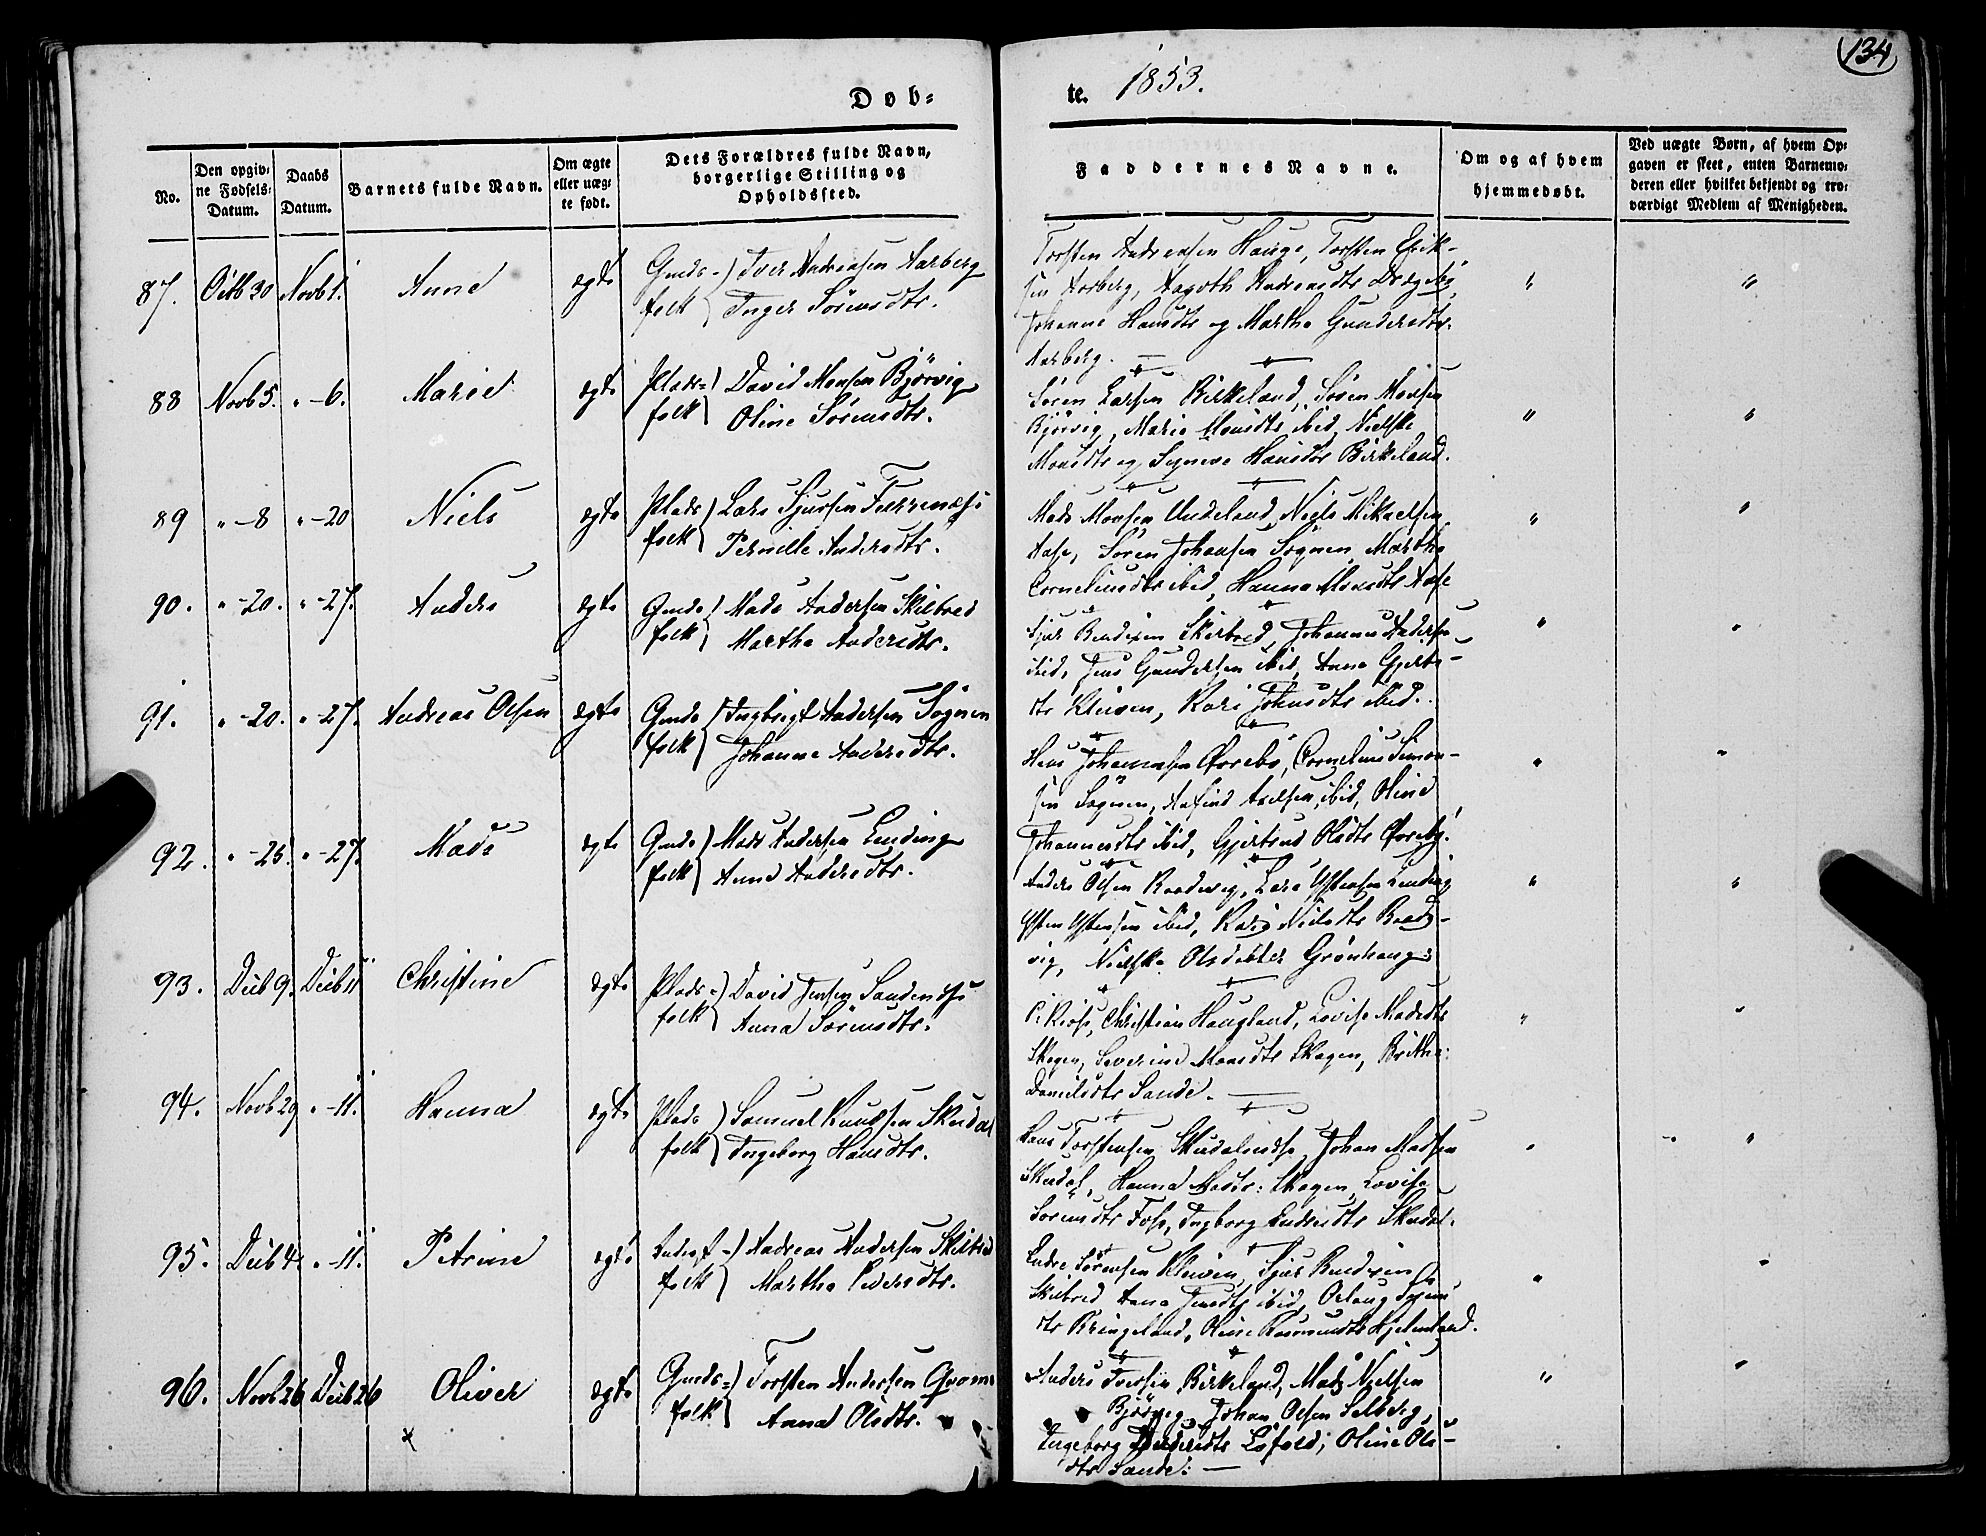 134
Døb-
te. 1853.
No.
Den opgiv-
ne Fødsels-
Datum.
Daabs
Datum.
Barnets fulde Navn.
Om ægte
eller uæg-
te født.
Dets Forældres fulde Navn,
borgerlige Stilling og
Opholdssted.
Faddernes Navne.
Om og af hvem
hjemmedøbt.
Ved uægte Børn, af hvem Op-
gaven er skeet, enten Barnemo-
deren eller hvilket bekjendt og tro-
værdigt Medlem af Menigheden.
87. Octb 30 Novb 1. Anne ægte Gmds-) Iver Andreasen Aarberg
folk Inger Sørensdtr.
Torsten Andreasen Hauge, Torsten Erik-
sen Aarberg, Andreasdtr
Johanne Hansdtr og Martha Gundersdtr.
Aarberg. "  "
88 Novb 5. " -6. Marie ægte Plads-) David Monsen Bjørvig
folk Oline Sørensdtr.
Søren Larsen Birkeland, Søren Monsen
Bjørvig, Marie Monsdtr ibid, Nielske
Monsdtr og Synneve Hansdtr Birkeland. "  "
89 " -8 " -20 Niels ægte Plads Lars Sjursen
folk Pernille Andersdtr.
Mads Monsen Undeland, Niels Mikaelsen
Aase, Søren Johansen Sognen, Martha
Corneliusdtr ibid, Hanna Monsdtr Aase "  "
90. " -20. " -27. Anders ægte Gmds Mads Andersen Skilbred
folk Martha Andersdtr.
Sjur Bendixen Skilbred, Johannes Andersen
ibid, Jens Gundersen ibid, Anna Gjerts-
dtr Kleiven, Kari Johnsdtr ibid. "  "
91. " -20. " -27. Andreas Olsen ægte Gmds Ingbrigt Andersen Sognen
folk Johanne Andersdtr.
Hans Johannesen Øvrebø, Cornelius Simon-
sen Sognen, Axelsen ibid, Oline
Johannesdtr ibid, Gjertrud Olsdtr "  "
92. " -25. " -27. Mads ægte Gmds Mads Andersen Lending
folk Anne Andersdtr.
Anders Olsen Raadvig, Lars Lending
ibid, Nielsdtr Raad-
vig, Nielske Olsdatter Grønhaug "  "
93. Decb 9. Decb 11 Christine ægte Plads-) David Jensen Sandenæs
folk Anna Sørensdtr.
Christian Haugland, Lovise Madsdtr
Skagen, Severine Monsdtr Skagen, Brithe
Danielsdtr Sande. "  "
94. Novb 29 " -11. Hanna ægte Plads Samuel Knudsen Skudal
folk Ingeborg Hansdtr.
Hans Torstensen Johan Madsen
Skudal, Hanna Madsdtr: Skagen, Lovise
Sørensdtr Foss, Ingborg Endresdtr Skudal. "  "
95. Decb 4. " -11. Petrine ægte -) Andreas Andersen Skilbred
folk Martha Pedersdtr.
Endre Sørensen Kleiven, Sjur Bendixen
Skilbred Anna Jensdtr ibid,
dtr Bringeland, Oline Rasmusdtr "  "
96. Novb 26 Decb 26 Oliver ægte Gmds-) Torsten Andersen
folk Anna Olsdtr.
Anders Iversen Birkeland, Mads Nielsen
Bjørvig, Johan Olsen Selberg,
Ingeborg Løfald, Oline Ols-
dtr Sande: "  "